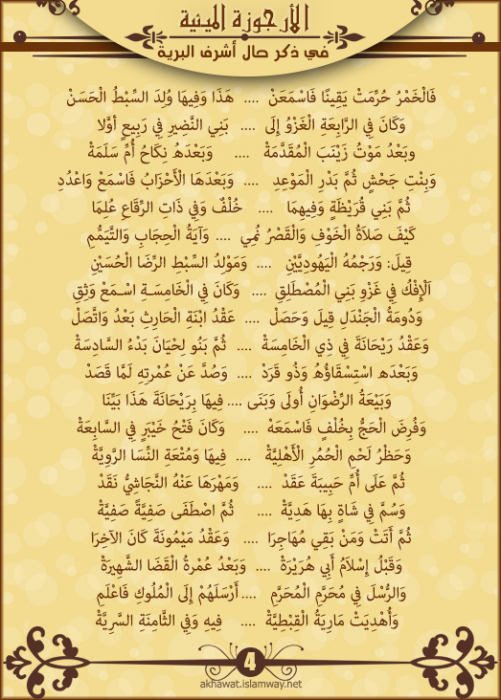 الأرجوزة الميئية
في ذكر حال أشرف البرية
فَالْخَمْرُ حُرِّمَتْ يَقِينًا فَاسْمَعَنْ .... هَذَا وَفِيهَا وُلِدَ السِّبْطُ الْحَسَنْ
وَكَانَ فِي الرَّابِعَةِ الْغَزْوُ إِلَى .... بَنِي النَّضِيرِ فِي رَبِيعٍ أَوَّلا
وبَعْدُ مَوْتُ زَيْنَبَ الْمُقَدَّمَةْ .... وَبَعْدَهُ نِكَاحُ أُمِّ سَلَمَةْ
وَبِنْتِ جَحْشٍ ثُمَّ بَدْرِ الْمَوْعِدِ .... وَبَعْدَهَا الْأَحْزَابُ فَاسْمَعْ وَاعْدُدِ
ثُمَّ بَنِي قُرَيْظَةٍ وَفِيهِمَا .... خُلْفٌ وَفِي ذَاتِ الرِّقَاعِ عُلِمَا
كَيْفَ صَلاَةُ الْخَوْفِ وَالْقَصْرُ نُمِي .... وَآيَةُ الْحِجَابِ وَالتَّيَمُّمِ
قِيلَ: وَرَجْمُهُ الْيَهُودِيَّيْنِ .... وَمَوْلِدُ السِّبْطِ الرِّضَا الْحُسَيْنِ
اَلْإِفْكُ فِي غَزْوِ بَنِي الْمُصْطَلِقِ .... وَكَانَ فِي الْخَامِسَةِ اسْمَعْ وَثِقِ
وَدُومَةُ الْجَنْدَلِ قِيلَ وَحَصَلْ .... عَقْدُ ابْنَةِ الْحَارِثِ بَعْدُ وَاتَّصَلْ
وَعَقْدُ رَيْحَانَةَ فِي ذِي الْخَامِسَةْ .... ثُمَّ بَنُو لِحْيَانَ بَدْءُ السَّادِسَةْ
وَبَعْدَه اسْتِسْقَاؤُهُ وَذُو قَرَدْ .... وَصُدَّ عَنْ عُمْرَتِهِ لَمَّا قَصَدْ
وَبَيْعَةُ الرِّضْوَانِ أُولَى وَبَنَى .... فِيهَا بِرَيْحَانَةَ هَذَا بَيِّنَا
وَفُرِضَ الْحَجُّ بِخُلْفٍ فَاسْمَعَهْ .... وَكَانَ فَتْحُ خَيْبَرٍ فِي السَّابِعَةْ
وَحَظْرُ لَحْمِ الْحُمُرِ الْأَهْلِيَّةْ .... فِيهَا وَمُتْعَةِ النِّسَا الرَّوِيَّةْ
ثُمَّ عَلَى أُمِّ حَبِيبَةَ عَقَدْ .... وَمَهْرَهَا عَنْهُ النَّجَاشِيُّ نَقَدْ
وَسُمَّ فِي شَاةٍ بِهَا هَدِيَّةْ .... ثُمَّ اصْطَفَى صَفِيَّةً صَفِيَّةْ
ثُمَّ أَتَتْ وَمَنْ بَقِي مُهَاجِرَا .... وَعَقْدُ مَيْمُونَةَ كَانَ الآخِرَا
وَقَبْلُ إِسْلاَمُ أَبِي هُرَيْرَةْ .... وَبَعْدُ عُمْرَةُ الْقَضَا الشَّهِيرَةْ
وَالرُّسْلَ فِي مُحَرَّمِ الْمُحَرَّمِ .... أَرْسَلَهُمْ إِلَى الْمُلُوكِ فَاعْلَمِ
وَأُهْدِيَتْ مَارِيَةُ الْقِبْطِيَّةْ .... فِيهِ وَفِي الثَّامِنَةِ السَّرِيَّةْ
4
akhawat.islamway.net